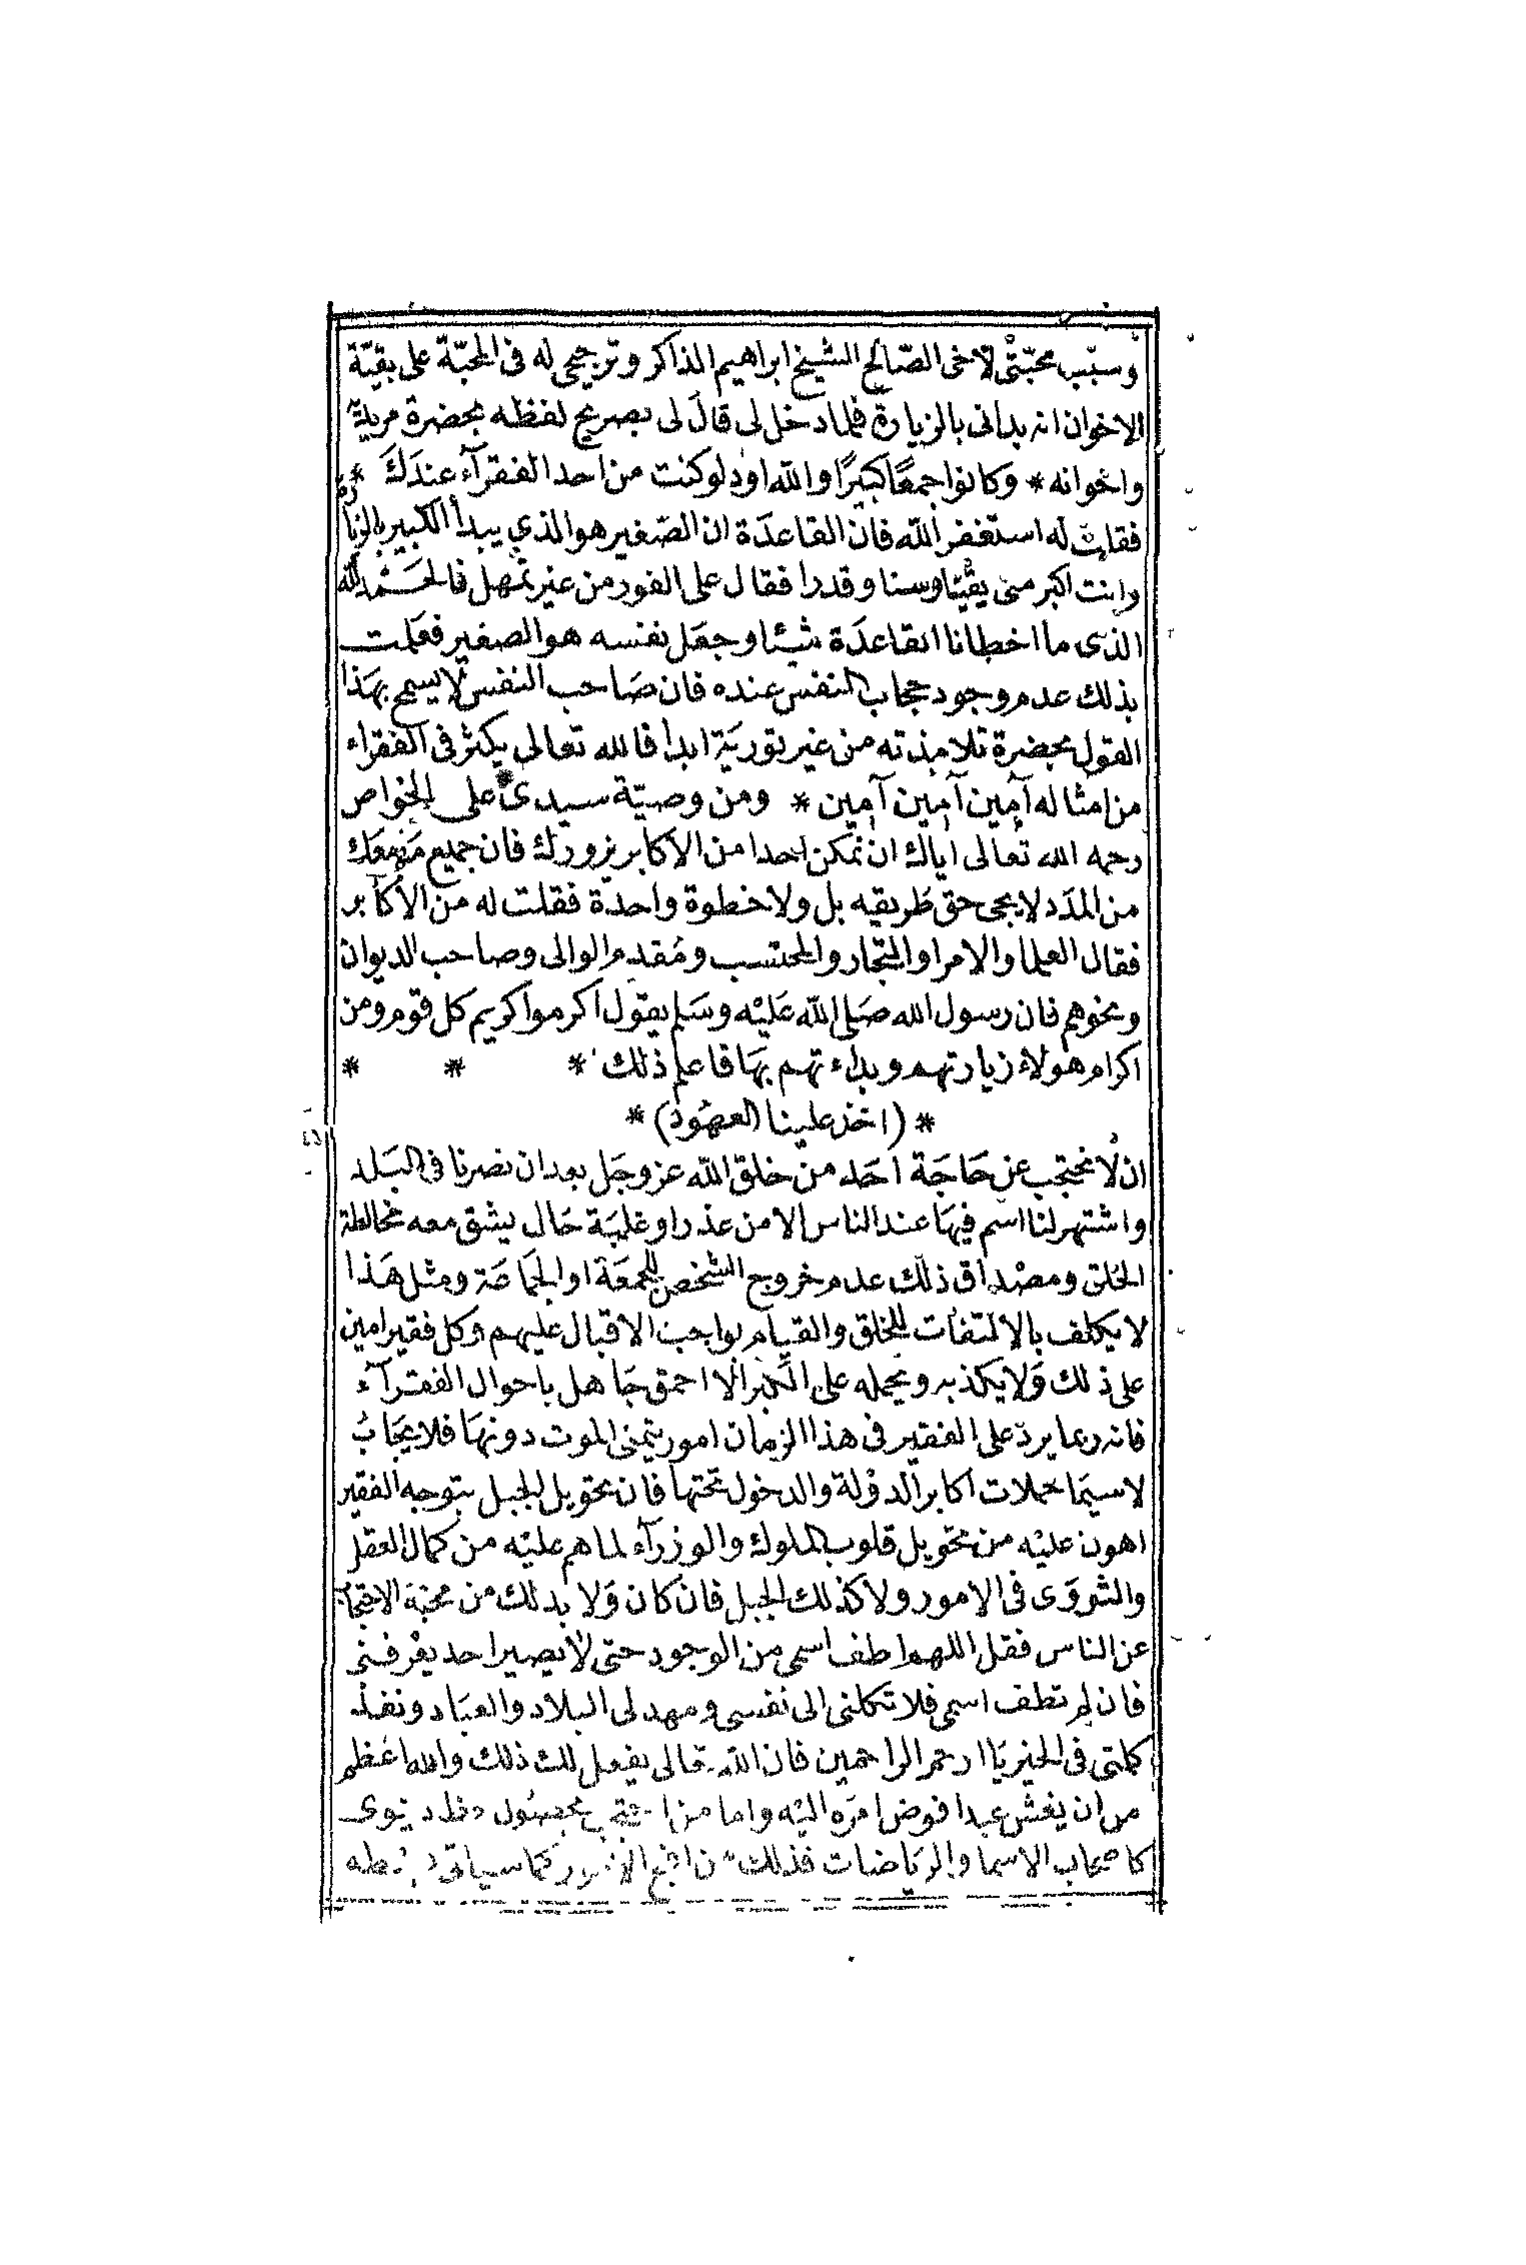 وسبب محبتى لاخى الصالح الشيخ ابراهيم الذاكر وترجيحى له فى المحبة على بقية
الاخوان انه بدانى بالزيارة فلما دخل لى قال لى بصريح لفظه بحضرة مريديه
واخوانه * وكانوا جمعًا كبيرًا والله اود لو كنت من احد الفقرآء عندك *
فقلت له استغفر الله فان القاعدة ان الصغير هو الذي يبدأ الكبير بالزيارة
وانت اكبر منى يقينا وسنا وقدرا فقال على الفور من غير تمهل فالحمد لله
الذى ما اخطانا القاعدة شيئا وجعل نفسه هو الصغير فعلمت
بذلك عدم وجود حجاب النفس عنده فان صاحب النفس لا يسمح بهذا
القول بحضرة تلامذته من غير تورية ابدا فالله تعالى يكثر فى الفقراء
من امثاله آمين آمين آمين * ومن وصية سيدى على الخواص
رحمه الله تعالى اياك ان تمكن احدا من الاكابر يزورك فان جميع ما معك
من المدد لا يجى حق طريقيه بل ولا خطوة واحدة فقلت له من الأكابر
فقال العلما والامرا والتجار والمحتسب ومقدم الوالى وصاحب الديوان
ونحوهم فان رسول الله صلى الله عليه وسلم يقول اكرموا كريم كل قوم ومن
اكرام هولاء زيارتهم وبداءتهم بها فاعلم ذلك * * *
* (اخذ علينا العهود) *
ان لا نحتجب عن حاجة احد من خلق الله عز وجل بعد ان نصرنا فى البلد
واشتهر لنا اسم فيها عند الناس الا من عذر او غلبة حال يشق معه مخالطة
الخلق ومصداق ذلك عدم خروج الشخص للجمعة او الجماعة ومثل هذا
لا يكلف بالالتفات للخلق والقيام بواجب الاقبال عليهم وكل فقير امين
على ذلك ولا يكذبه ويحمله على الكبر الا احمق جاهل باحوال الفقرآء
فانه ربما يرد على الفقير فى هذا الزمان امور يتمنى الموت دونها فلا يجابُ
لا سيما حملات اكابر الدولة والدخول تحتها فان تحويل الجبل بتوجه الفقير
اهون عليه من تحويل قلوب الملوك والوزرآء لما هم عليه من كمال العقل
والتروى فى الامور ولا كذلك الجبل فان كان ولا بد لك من محبة الاحتجاب
عن الناس فقل اللهم اطف اسمى من الوجود حتى لا يصير احد يعرفنى
فان لم تطف اسمى فلا تكلنى الى نفسى ومهد لى البلاد والعباد ونفذ
كلمتى فى الخير يا ارحم الراحمين فان الله تعالى يفعل لك ذلك والله اعظم
من ان يغش عبدا فوض امره اليه واما من احتجب بحصول حظ دنيوى
كاصحاب الاسما والرياضات فذلك من اقبح الامور كما سياتى بسطه